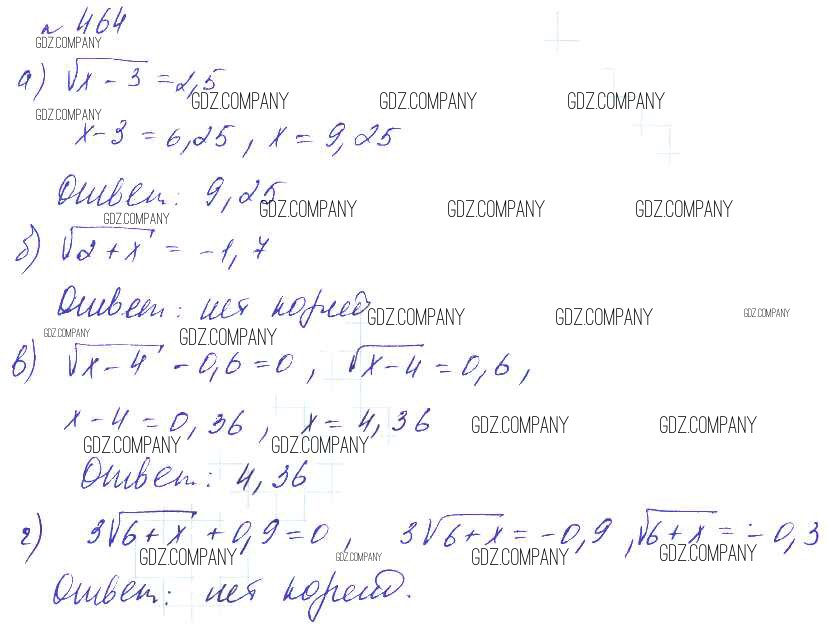 № 464
GDZ.COMPANY
а) √x - 3 = 2,5
GDZ.COMPANY GDZ.COMPANY GDZ.COMPANY
GDZ.COMPANY
x - 3 = 6,25 , x = 9,25
Ответ: 9,25
GDZ.COMPANY GDZ.COMPANY GDZ.COMPANY
GDZ.COMPANY
б) √2 + x = -1,7
Ответ: нет корней
GDZ.COMPANY GDZ.COMPANY GDZ.COMPANY
GDZ.COMPANY GDZ.COMPANY
в) √x - 4 - 0,6 = 0 , √x - 4 = 0,6 ,
x - 4 = 0,36 , x = 4,36
GDZ.COMPANY GDZ.COMPANY
GDZ.COMPANY GDZ.COMPANY
Ответ: 4,36
г) 3√6 + x + 0,9 = 0 , 3√6 + x = -0,9 , √6 + x = - 0,3
GDZ.COMPANY GDZ.COMPANY GDZ.COMPANY GDZ.COMPANY
Ответ: нет корней.